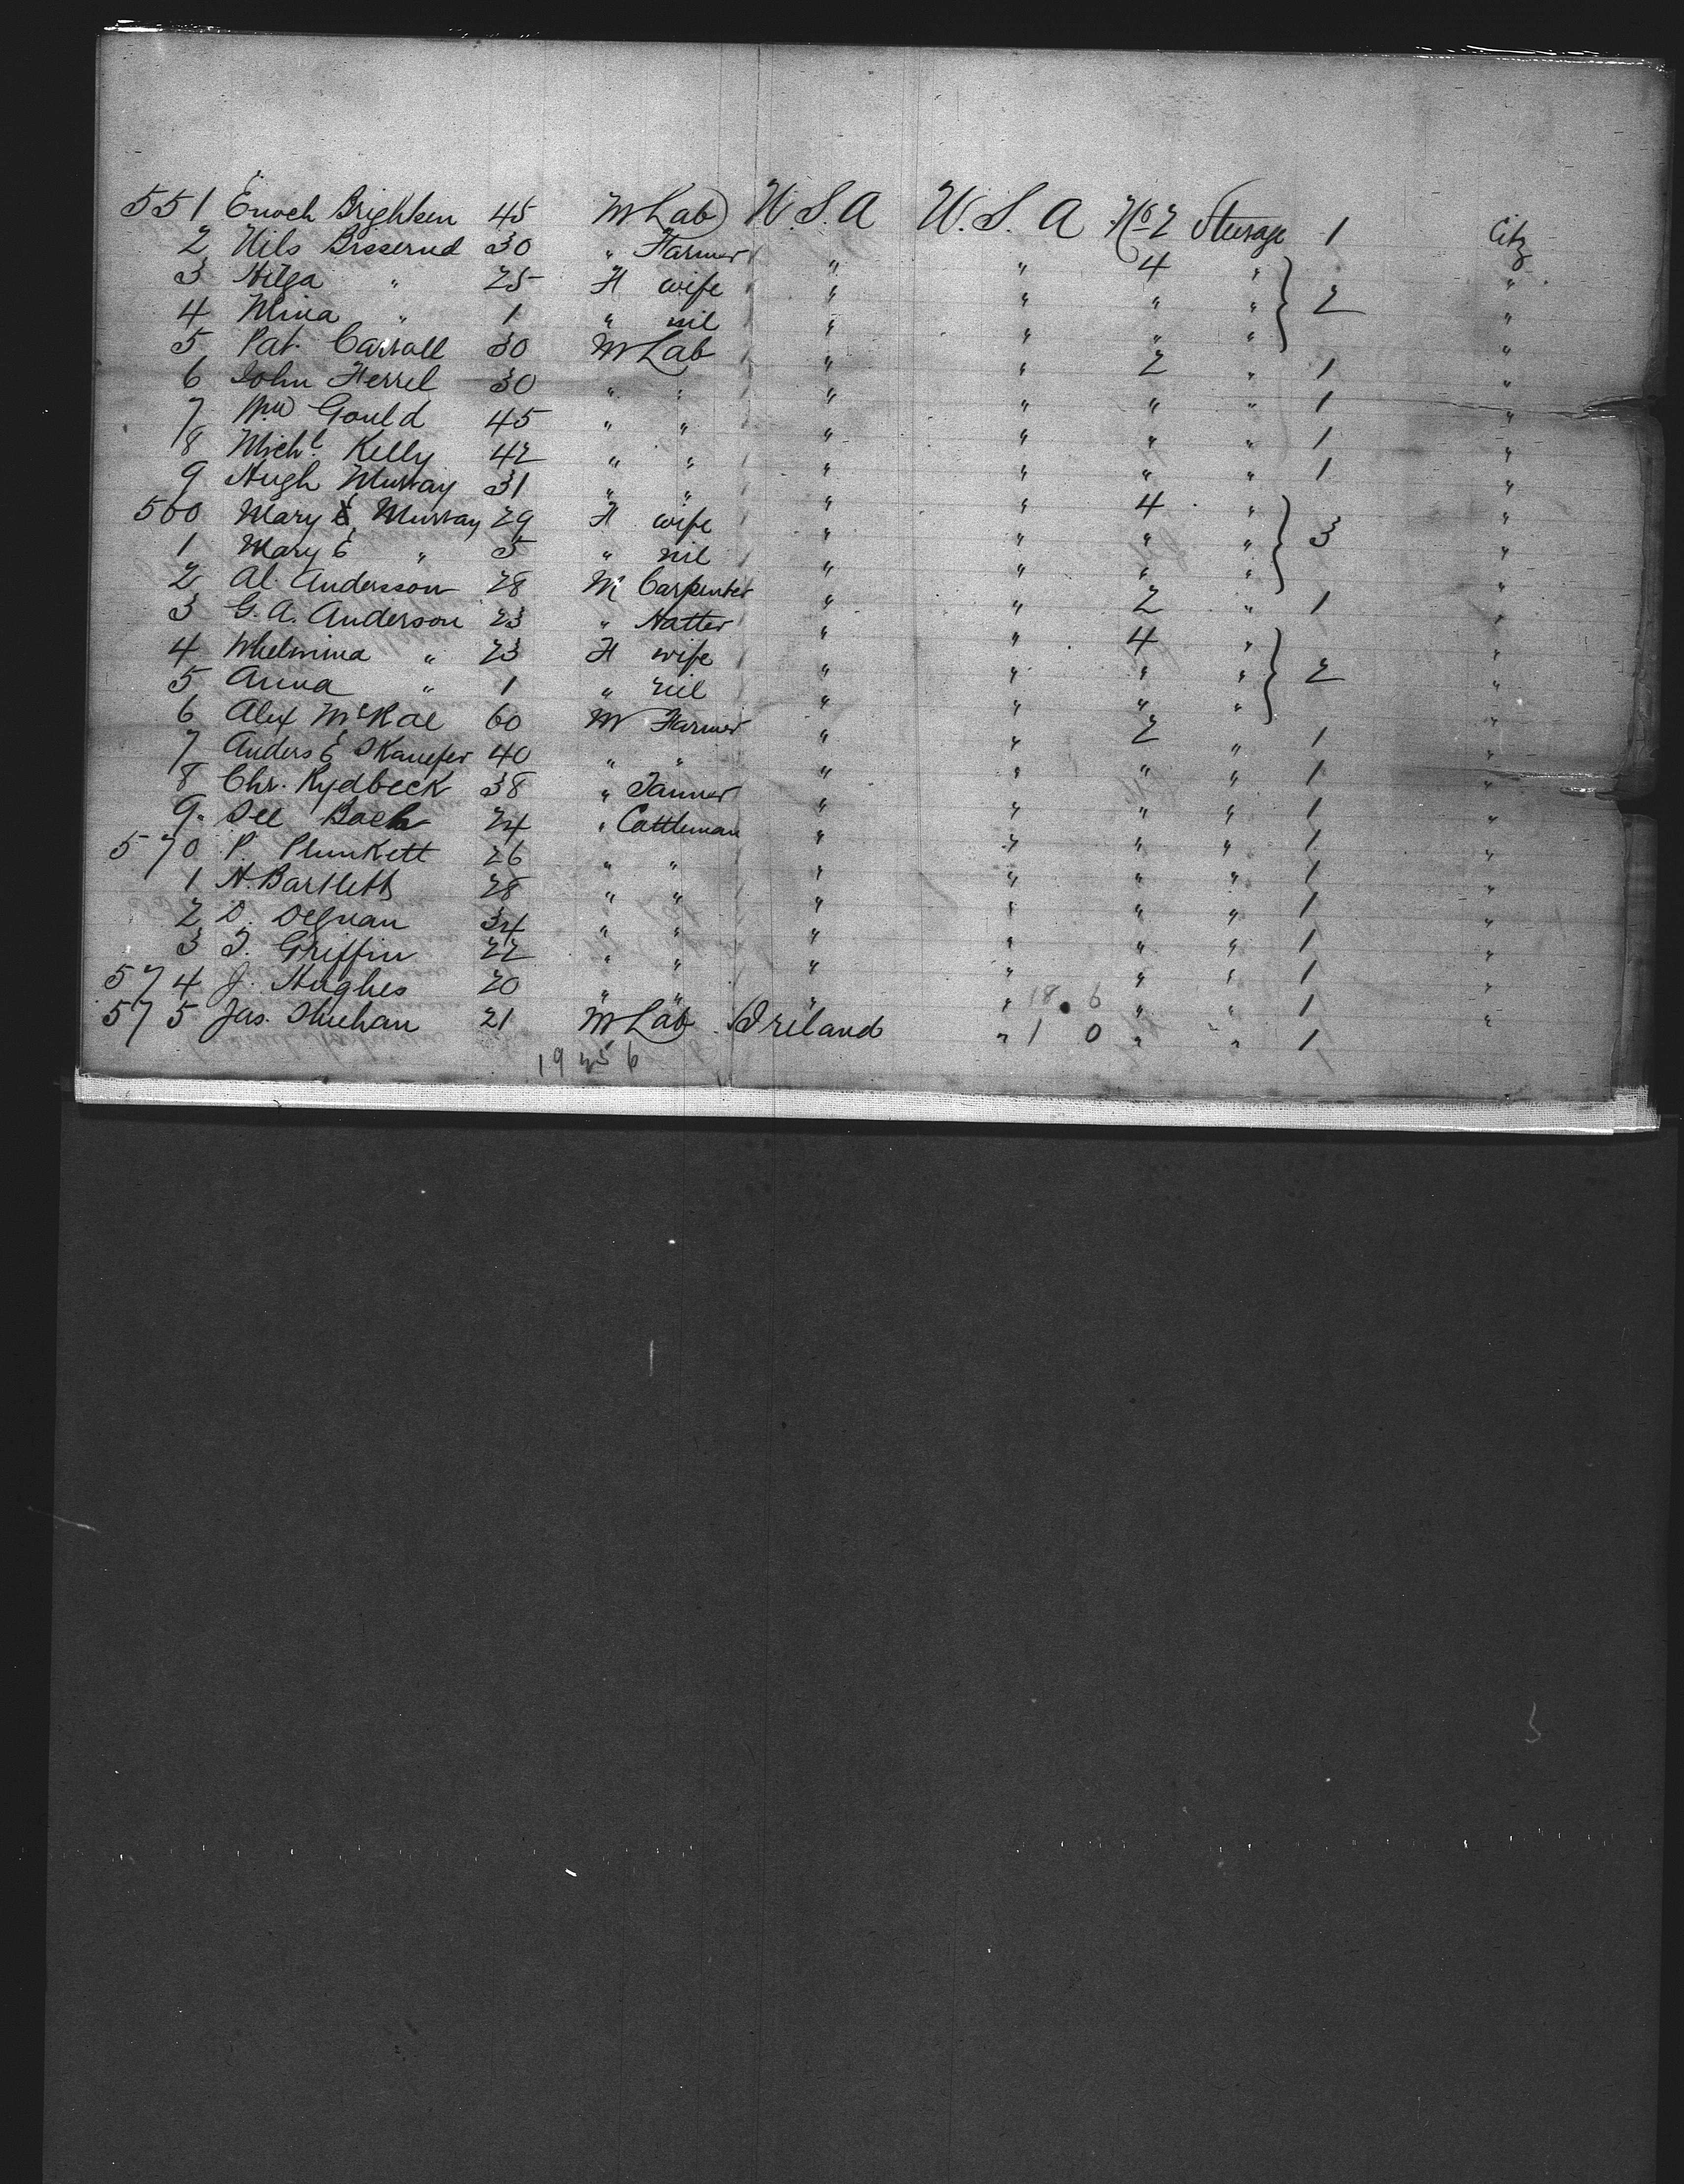 551 Enoch Brighten 45 M Lab U.S.A U.S.A No 2 Steerage 1 Citz
2 Nils Bisserud 30 " Farmer " " 4 " "
3 Hilga " 25 F wife " " " " 2 "
4 Mina " 1 " nil " " " " "
5 Pat. Carroll 30 M Lab " " 2 " 1 "
6 John Ferrel 30 " " " " " " 1 "
7 Wm Gould 45 " " " " " " 1 "
8 Michl Kelly 42 " " " " " " 1 "
9 Hugh Murray 31 " " " " 4 " "
560 Mary E Murray 29 F wife " " " " 3 "
1 Mary E " 5 " nil " " " " "
2 Al. Andersson 28 M Carpenter " " 2 " 1 "
3 G. A. Anderson 23 " Hatter " " 4 " "
4 Whelmina " 23 F wife " " " " 2 "
5 Anna " 1 " nil " " " " "
6 Alex McRae 60 M Farmer " " 2 " 1 "
7 Anders E 40 " " " " " " 1 "
8 Chr. Rydbeck 38 " Tanner " " " " 1 "
9. Bach 24 " Cattleman " " " " 1 "
570 P. Plunkett 26 " " " " " " 1 "
1 H. Bartlett 28 " " " " " " 1 "
2 D. Degnan 34 " " " " " " 1 "
3 T. Griffin 22 " " " " " " 1 "
574 J. Hughes 20 " " " " 18 . 6 " " 1 "
575 Jas. Shehan 21 M Lab Ireland " 1 0 " " 1